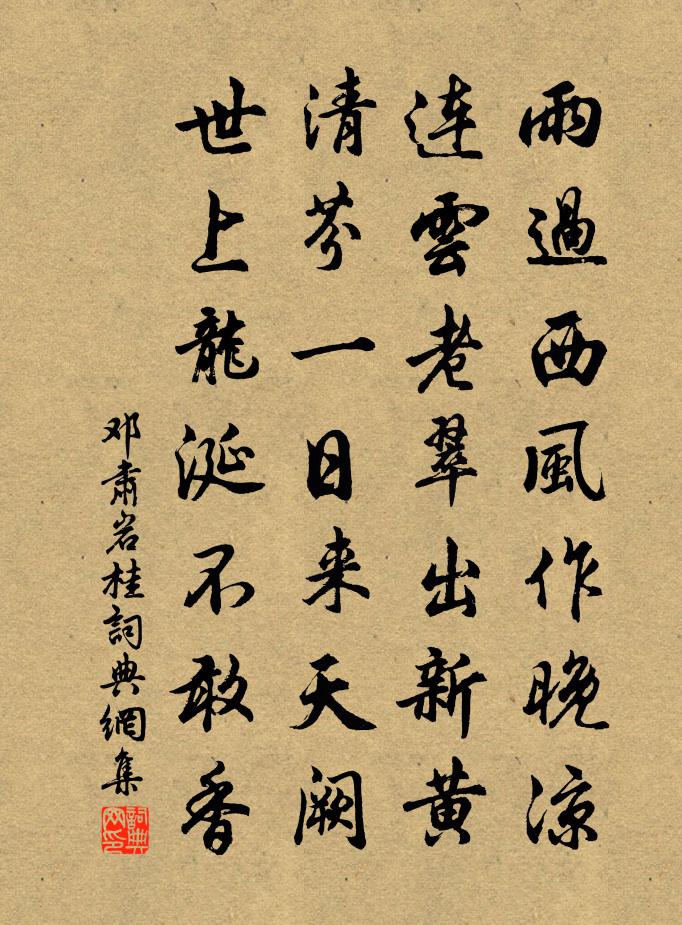 雨過西風作晚涼
連雲老翠出新黄
清芬一日来天闕
世上龍涎不敢香
邓肅岩桂詞典網集
詞典网印